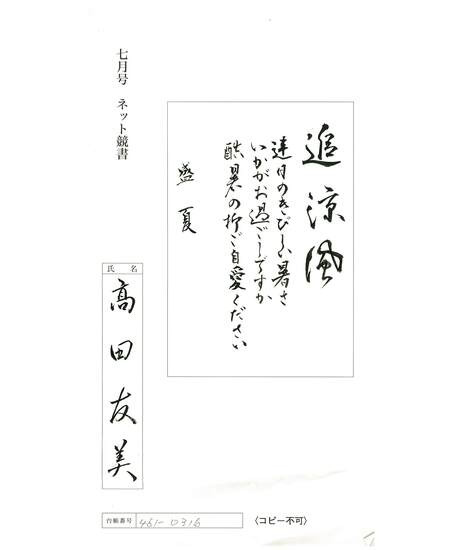 七月号 ネット競書
追涼風
連日のきびしい暑さ
いかがお過ごしですか
酷暑の折ご自愛ください
盛夏
氏名
高田友美
台帳番号 461-0316
〈コピー不可〉